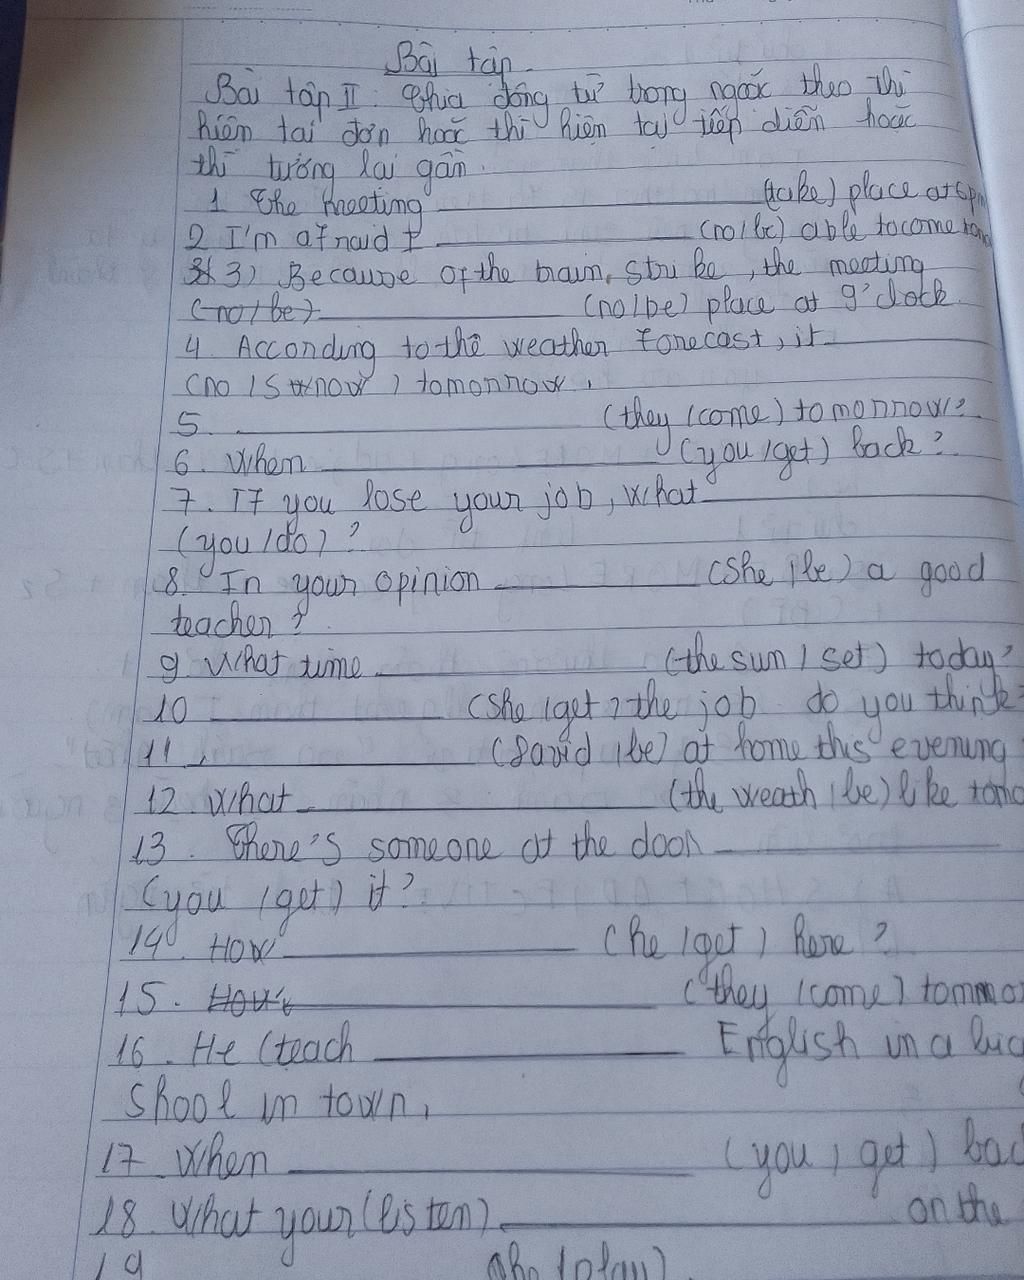 Bài tập
Bài tập II : Chia động từ trong ngoặc theo thì
hiện tại đơn hoặc thì hiện tại tiếp diễn hoặc
thì tương lai gần.
1 The meeting (take) place at 6 pm
2 I'm afraid I (no/be) able to come
3) Because of the train, strike, the meeting
(no/be) (no/be) place at 9'clock.
4. According to the weather forecast, it
(no / snow) tomorrow.
5. (they /come) tomorrow?
6. When (you /get) back?
7. If you lose your job, what
(you /do)?
8. In your opinion (she /be) a good
teacher?
9 What time (the sun / set) today?
10 (she /get) the job do you think?
11, (David /be) at home this evening
12. What (the weath /be) like
13. There's someone at the door
(you /get) it?
14 How (he /get) here?
15. How (they /come)
16. He (teach English in a
shool in town,
17 When (you / get)
18. What your (listen) on the
19 she (play)